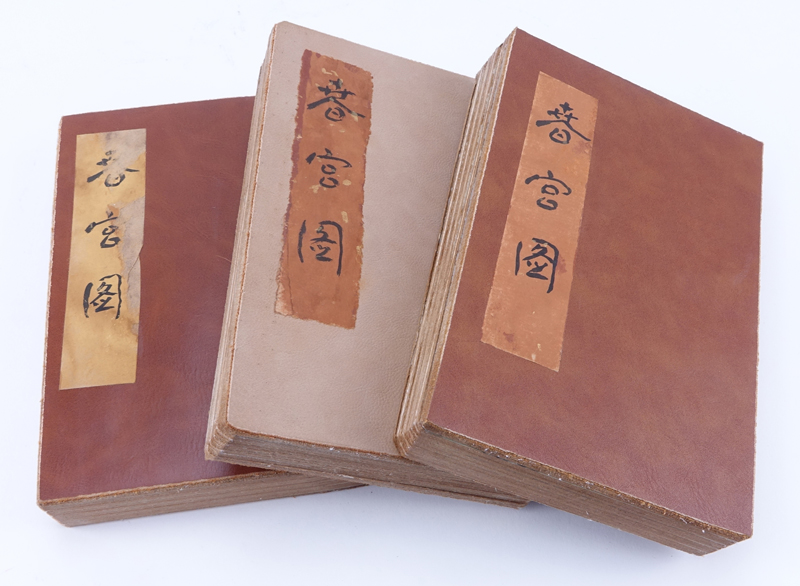 春宫图
春宫图
春宫图